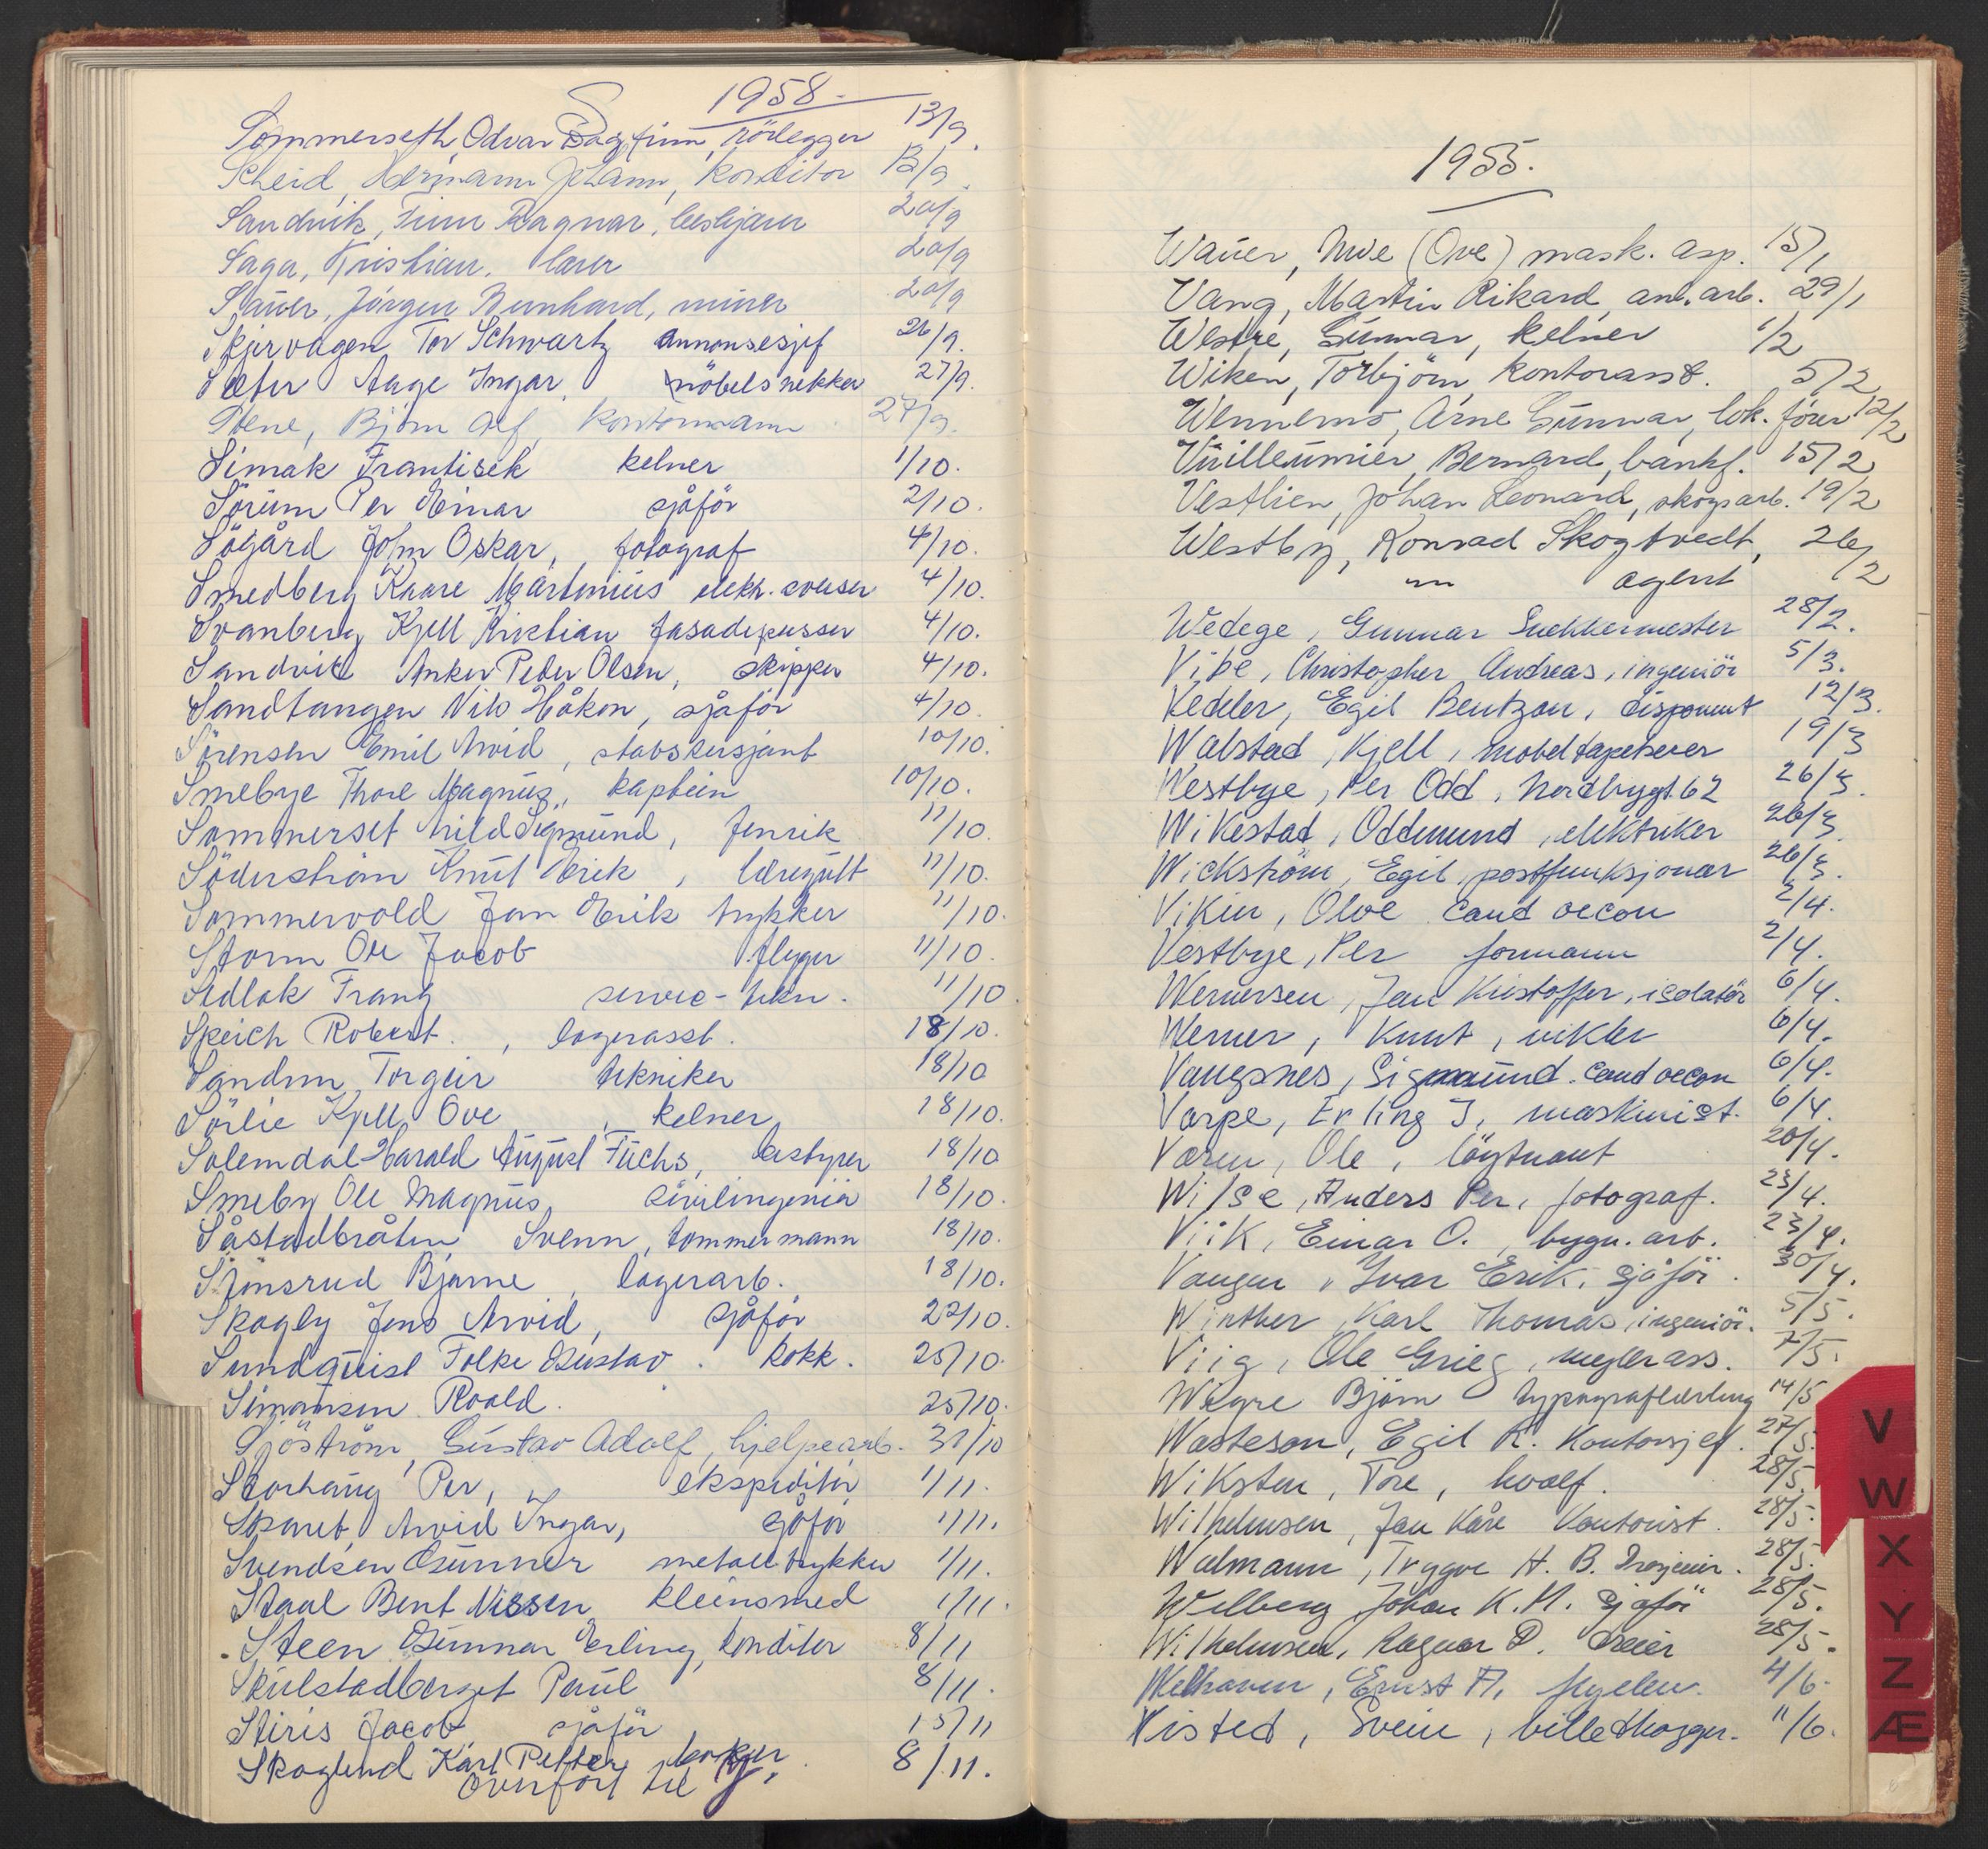 S 1958.
Sommerseth, Odvar Dagfinn, rörlegger 13/9.
Scheid, Hermann Johann, Konditor 13/9.
Sandvik, Finn Ragnar, 20/9
Saga, Kristian, lærer 20/9
Sauer, Jörgen Bernhard, murer 20/9
Skjervagen Tor Schwartz annonsesjef 26/9.
Sæter Aage Ingar, möbelsnekker 27/9.
Stene, Björn Alf, Kontormann 27/9.
Simak Frantisek kelner 1/10.
Sörum Per Einar sjåför 2/10.
Sögård John Oskar, fotograf 4/10.
Smedberg Kaare Martinius elektr. sveiser 4/10.
Svanberg Kjell Kristian fasadepusser 4/10.
Sandvik Anker Peder Olsen, skipper 4/10.
Sandtangen Nils Håkon, sjåför 4/10.
Sörensen Emil Arvid, stabssersjant 10/10.
Smebye Thore Magnus, kaptein 10/10.
Sommerset Arild Sigmund, fenrik 11/10.
Söderström Knut Erik, læregutt 11/10.
Sommervold Jan Erik trykker 11/10.
Storm Ole Jacob flyger 11/10.
Sedlak Franz service-tekn. 11/10.
Speich Robert, lagerasst. 18/10.
Sandnn Torgeir tekniker 18/10
Sörlie Kjell Ove, kelner 18/10.
Solemdal Harald August Fuchs, bestyrer 18/10
Smeby Ole Magnus sivilingeniör 18/10.
Såstadbråten Svenn, tömmermann 18/10.
Stömsrud Bjarne, lagerarb. 18/10.
Skogly Jens Arvid, sjåför 22/10.
Sundquist Folke Gustav. kokk. 25/10.
Simonsen Roald. 25/10.
Sjöström, Gustav Adolf, hjelpearb. 31/10
Storhaug Per, ekspeditör 1/11.
Skaret, Arvid Ingar, sjåför 1/11.
Svendsen Gunnar metalltrykker 1/11.
Staal Bent Nissen kleinsmed 1/11.
Steen Gunnar Erling, konditor 8/11
Skulstadberget Paul 8/11.
Stiris Jacob sjåför 15/11
Skoglund Karl Petter 8/11.
Overfört til Y.
1955.
Wauer, Uwe (Ove) mask. asp. 15/1
Vang, Martin Rikard, anl. arb. 29/1
Westre, Gunnar, kelner 1/2
Wiken, Torbjörn, Kontorasst. 5/2
Wennemo, Arne Gunnar, lok. förer 12/2
Vuilleumier, Bernard, bankf. 15/2
Vestlien, Johan Leonard, skogsarb. 19/2
Westby, Konrad Skogtvedt, 26/2
" agent
Wedege, Gunnar Snekkermester 28/2.
Vibe, Christopher Andreas, ingeniör 5/3.
Vedeler, Egil Bentzon, disponent 12/3.
Walstad, Kjell, Møbeltapetserer 19/3
Westbye, Per Odd, Nordbygt. 62 26/3.
Wikestad, Oddmund, elektriker 26/3.
Wickström, Egil, postfunksjonær 26/3.
Viken, Olve Cand oecon 2/4.
Vestbye, Per formann 2/4.
Wernersen, Jan Kristoffer, isolatör 6/4.
Werner, Knut, vikler 6/4.
Vangsnes, Sigmund. Cand oecon 6/4.
Varpe, Erling J, maskinist. 6/4.
Væren, Ole, löytnant 20/4.
Wilse, Anders Per, fotograf. 23/4.
Viik, Einar O., bygn. arb. 23/4.
Vangen, Ivar Erik, sjåför. 30/4.
Winther, Karl Thomas, ingeniör. 5/5.
Viig, Ole Grieg, meglerass. 7/5.
Wegre Björn typograflærling 14/5
Wasteson, Egil R. Kontorsjef. 27/5.
Wiksten, Tore, hvalf. 28/5.
Wilhelmsen, Jan Kåre Kontorist. 28/5.
Walmann, Trygve H. B. Ingeniör. 28/5.
Welberg Johan K. M. sjåför 28/5.
Wilhelmsen, Ragnar D. dreier 28/5.
Welhaven, Ernst A. 4/6.
Visted, Svein, billedhogger. 11/6.
V
W
X
Y
Z
Æ